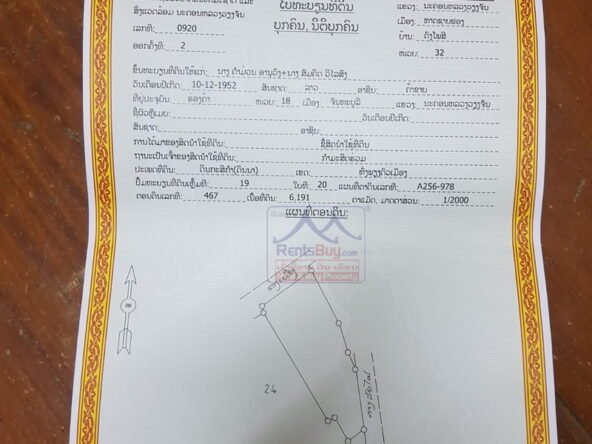 ໃບທະບຽນທີ່ດິນ
ບຸກຄົນ, ນິຕິບຸກຄົນ
ສິ່ງແວດລ້ອມ ນະຄອນຫລວງວຽງຈັນ
ເລກທີ: 0920
ອອກຄັ້ງທີ: 2
ແຂວງ: ນະຄອນຫລວງວຽງຈັນ
ເມືອງ: ຫາດຊາຍຟອງ
ບ້ານ: ດົງໂພສີ
ໜ່ວຍ: 32
ຂຶ້ນທະບຽນທີ່ດິນໃຫ້ແກ່: ນາງ ຄໍາມ່ວນ ອານຸວົງ+ນາງ ສົມຄິດ ວິໄລສິງ
ວັນເດືອນປີເກີດ: 10-12-1952 ສັນຊາດ: ລາວ ອາຊີບ: ຄ້າຂາຍ
ທີ່ຢູ່ປະຈຸບັນ: ຮ່ອງຄ້າ ໜ່ວຍ: 18 ເມືອງ: ຈັນທະບູລີ ແຂວງ: ນະຄອນຫລວງວຽງຈັນ
ຊື່ຜົວຫຼືເມຍ: ວັນເດືອນປີເກີດ:
ສັນຊາດ: ອາຊີບ:
ການໄດ້ມາຂອງສິດນໍາໃຊ້ທີ່ດິນ: ຊື້ສິດນໍາໃຊ້ທີ່ດິນ
ຖານະເປັນເຈົ້າຂອງສິດນໍາໃຊ້ທີ່ດິນ: ກໍາມະສິດຮວມ
ປະເພດທີ່ດິນ: ດິນກະສິກໍາ(ດິນນາ) ເຂດ: ທົ່ງພຽງຕົວເມືອງ
ປຶ້ມທະບຽນທີ່ດິນເຫຼັ້ມທີ: 19 ໃບທີ: 20 ແຜນທີ່ຕາດິນເລກທີ: A256-978
ຕອນດິນເລກທີ: 467 ເນື້ອທີ່ດິນ: 6,191 ຕາແມັດ, ມາດຕາສ່ວນ: 1/2000
ແຜນທີ່ຕອນດິນ:
RentsBuy.com
Property
24